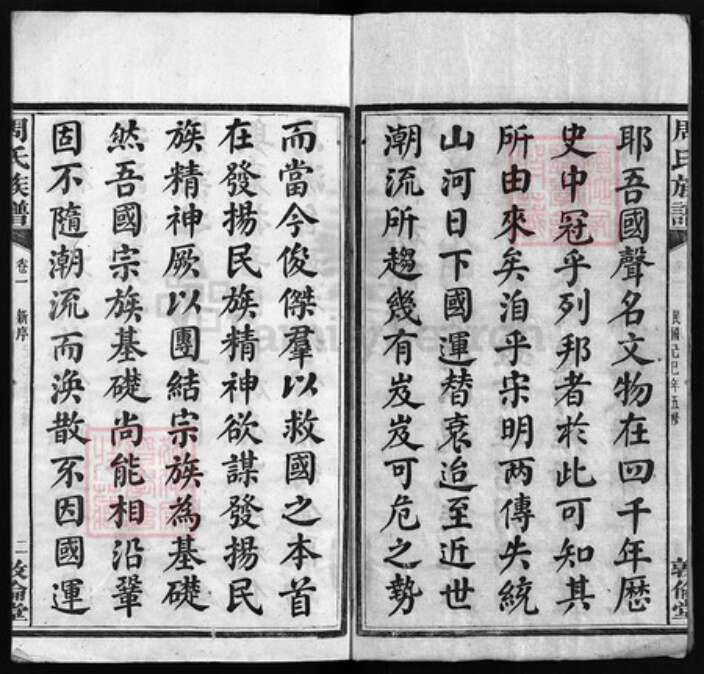 周氏族譜
民國己巳年五修
敦倫堂
耶吾國聲名文物在四千年歷
史中冠乎列邦者於此可知其
所由來矣洎乎宋明两傳失統
山河日下國運替衰迨至近世
潮流所趨幾有岌岌可危之勢
而當今俊傑羣以救國之本首
在發揚民族精神欲謀發揚民
族精神厥以團結宗族為基礎
然吾國宗族基礎尚能相沿鞏
固不隨潮流而渙散不因國運
周氏族譜
卷一
新序
二
敦倫堂